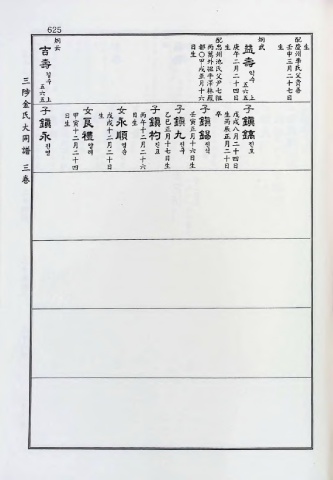 625
生
配慶州李氏父貴善
壬申三月二十七日
生
炳武
益壽 익수 五六五上
庚午二月二十四日
生
配忠州池氏父尹七祖
丙冕外祖平澤林霞
都○甲戌五月十六
日生
炳玄
吉壽 길수 五六五上
子鎭鎬 진호
戊戌八月二十四日
生丙辰正月二十日
卒
子鎭錫 진석
壬寅正月十六日生
子鎭九 진구
乙巳正月十七日生
子鎭杓 진표
丙午十二月二十六
日生
女永順 영순
戊戌十二月二十日
生
女良禮 양례
甲寅十二月二十四
日生
子鎭永 진영
三陟金氏大同譜 三卷